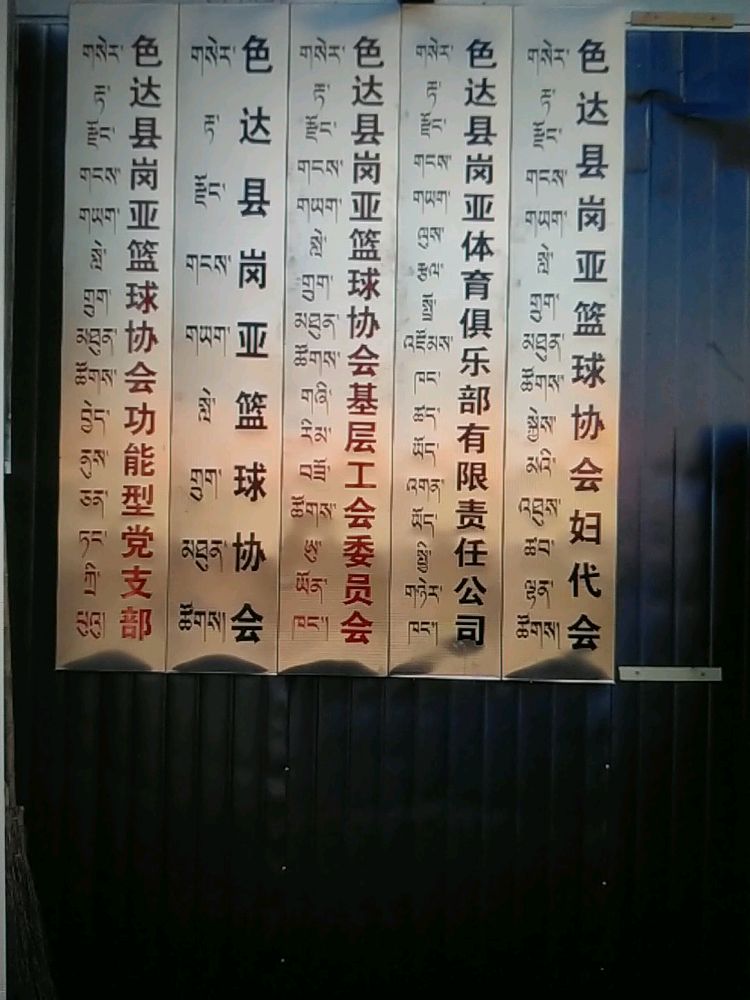 གསེར་རྟ་རྫོང་གངས་གཡག་མཐུན་ཚོགས་བྱེད་ནུས་ཅན་ཏང་
色达县岗亚篮球协会功能型党支部
གསེར་རྟ་རྫོང་གངས་གཡག་མཐུན་ཚོགས
色达县岗亚篮球协会
གསེར་རྟ་རྫོང་གངས་གཡག་མཐུན་ཚོགས་གཞི་རིམ་བཟོ་ཚོགས་ཨུ་ཡོན་ཁང་
色达县岗亚篮球协会基层工会委员会
གསེར་རྟ་རྫོང་གངས་གཡག་ལུས་རྩལ་འཛོམས་ཁང་ཚད་ཡོད་འགན་ཡོད་ཁང་
色达县岗亚体育俱乐部有限责任公司
གསེར་རྟ་རྫོང་གངས་གཡག་མཐུན་ཚོགས་མའི་ལྷན་ཚོགས
色达县岗亚篮球协会妇代会